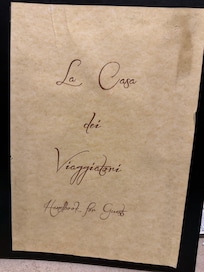 La Casa
dei
Viaggiatori
for Guests